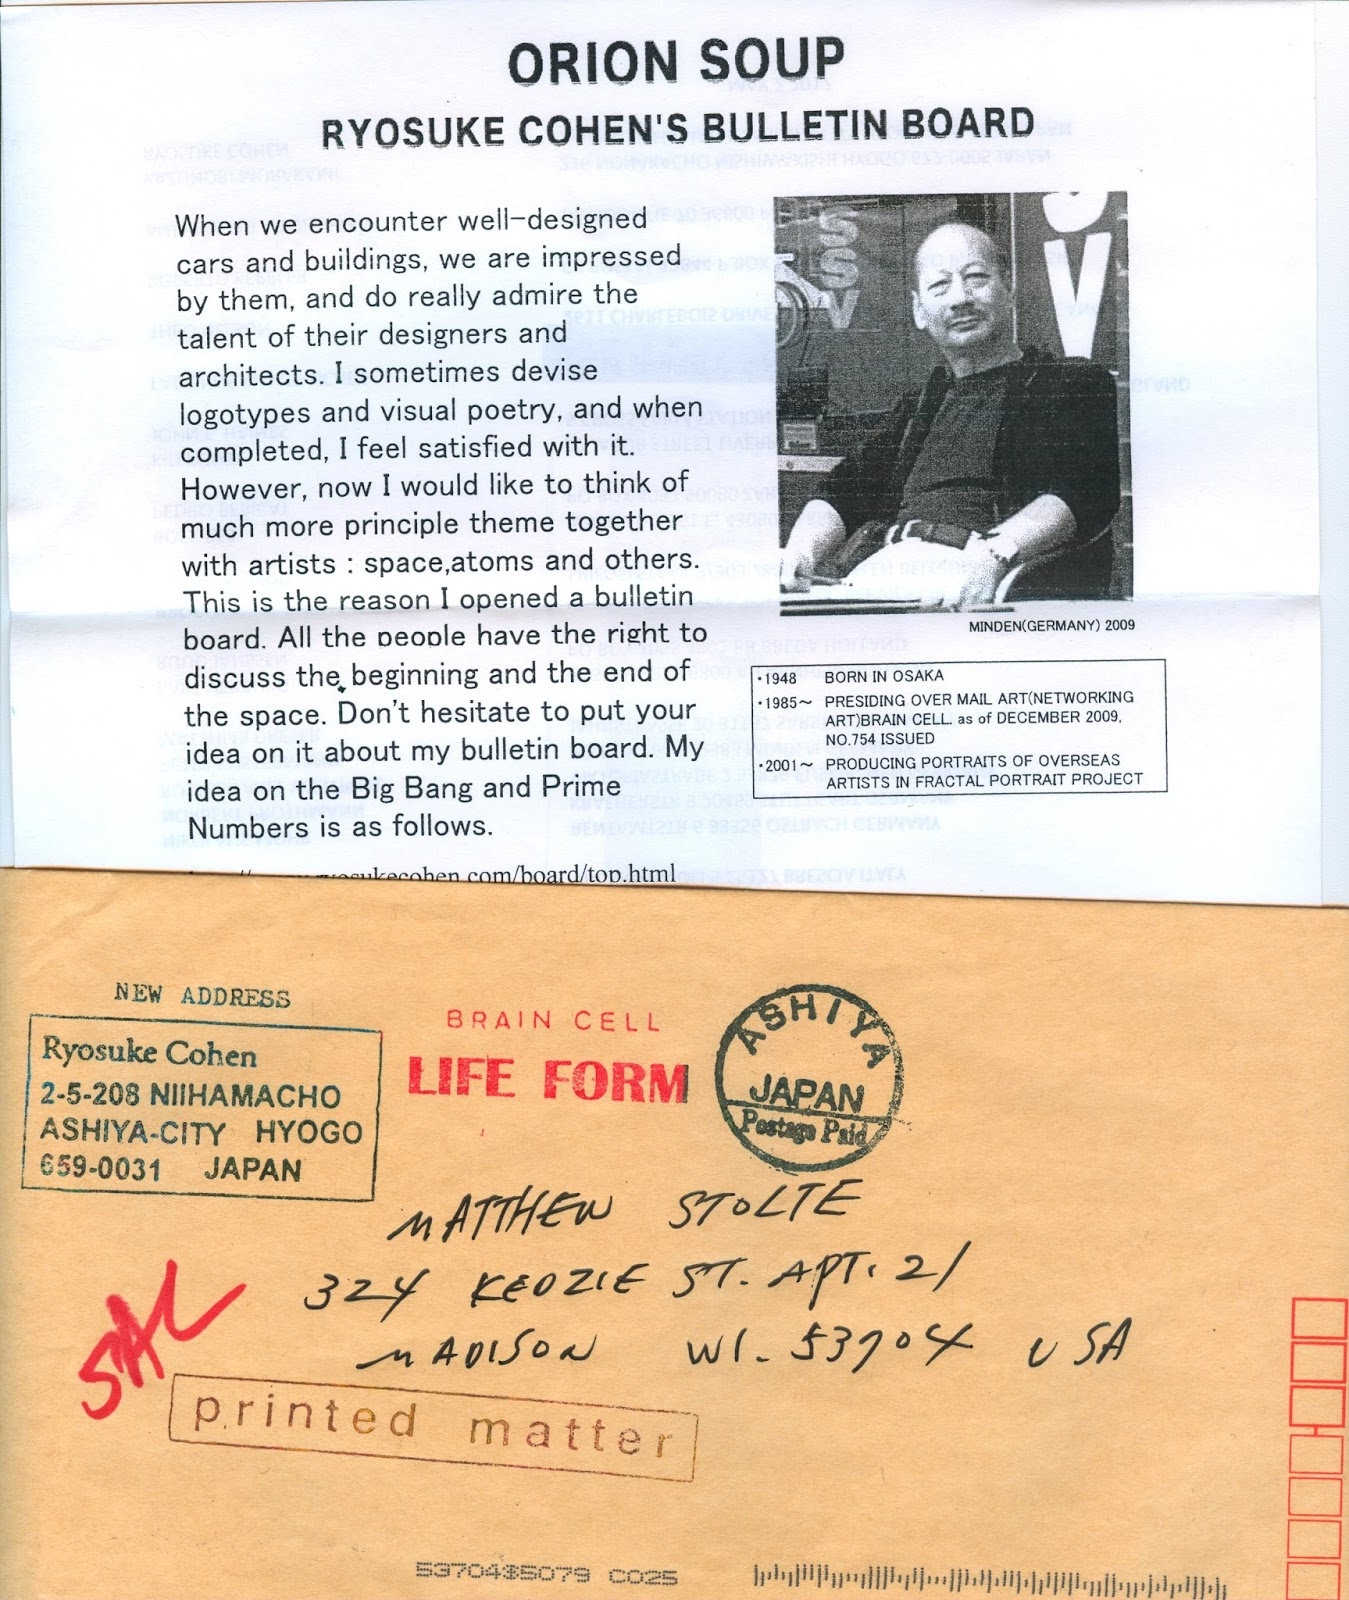 ORION SOUP
RYOSUKE COHEN'S BULLETIN BOARD
When we encounter well-designed
cars and buildings, we are impressed
by them, and do really admire the
talent of their designers and
architects. I sometimes devise
logotypes and visual poetry, and when
completed, I feel satisfied with it.
However, now I would like to think of
much more principle theme together
with artists : space,atoms and others.
This is the reason I opened a bulletin
board. All the people have the right to
discuss the beginning and the end of
the space. Don't hesitate to put your
idea on it about my bulletin board. My
idea on the Big Bang and Prime
Numbers is as follows.
ryosukecohen.com/board/top.html
MINDEN(GERMANY) 2009
・1948 BORN IN OSAKA
・1985～ PRESIDING OVER MAIL ART(NETWORKING
ART)BRAIN CELL. as of DECEMBER 2009,
NO.754 ISSUED
・2001～ PRODUCING PORTRAITS OF OVERSEAS
ARTISTS IN FRACTAL PORTRAIT PROJECT
NEW ADDRESS
Ryosuke Cohen
2-5-208 NIIHAMACHO
ASHIYA-CITY HYOGO
659-0031 JAPAN
BRAIN CELL
LIFE FORM
ASHIYA
JAPAN
Postage Paid
MATTHEW STOLTE
324 KEDZIE ST. APT. 21
MADISON WI. 53704 USA
SAL
printed matter
53704$5079 C025